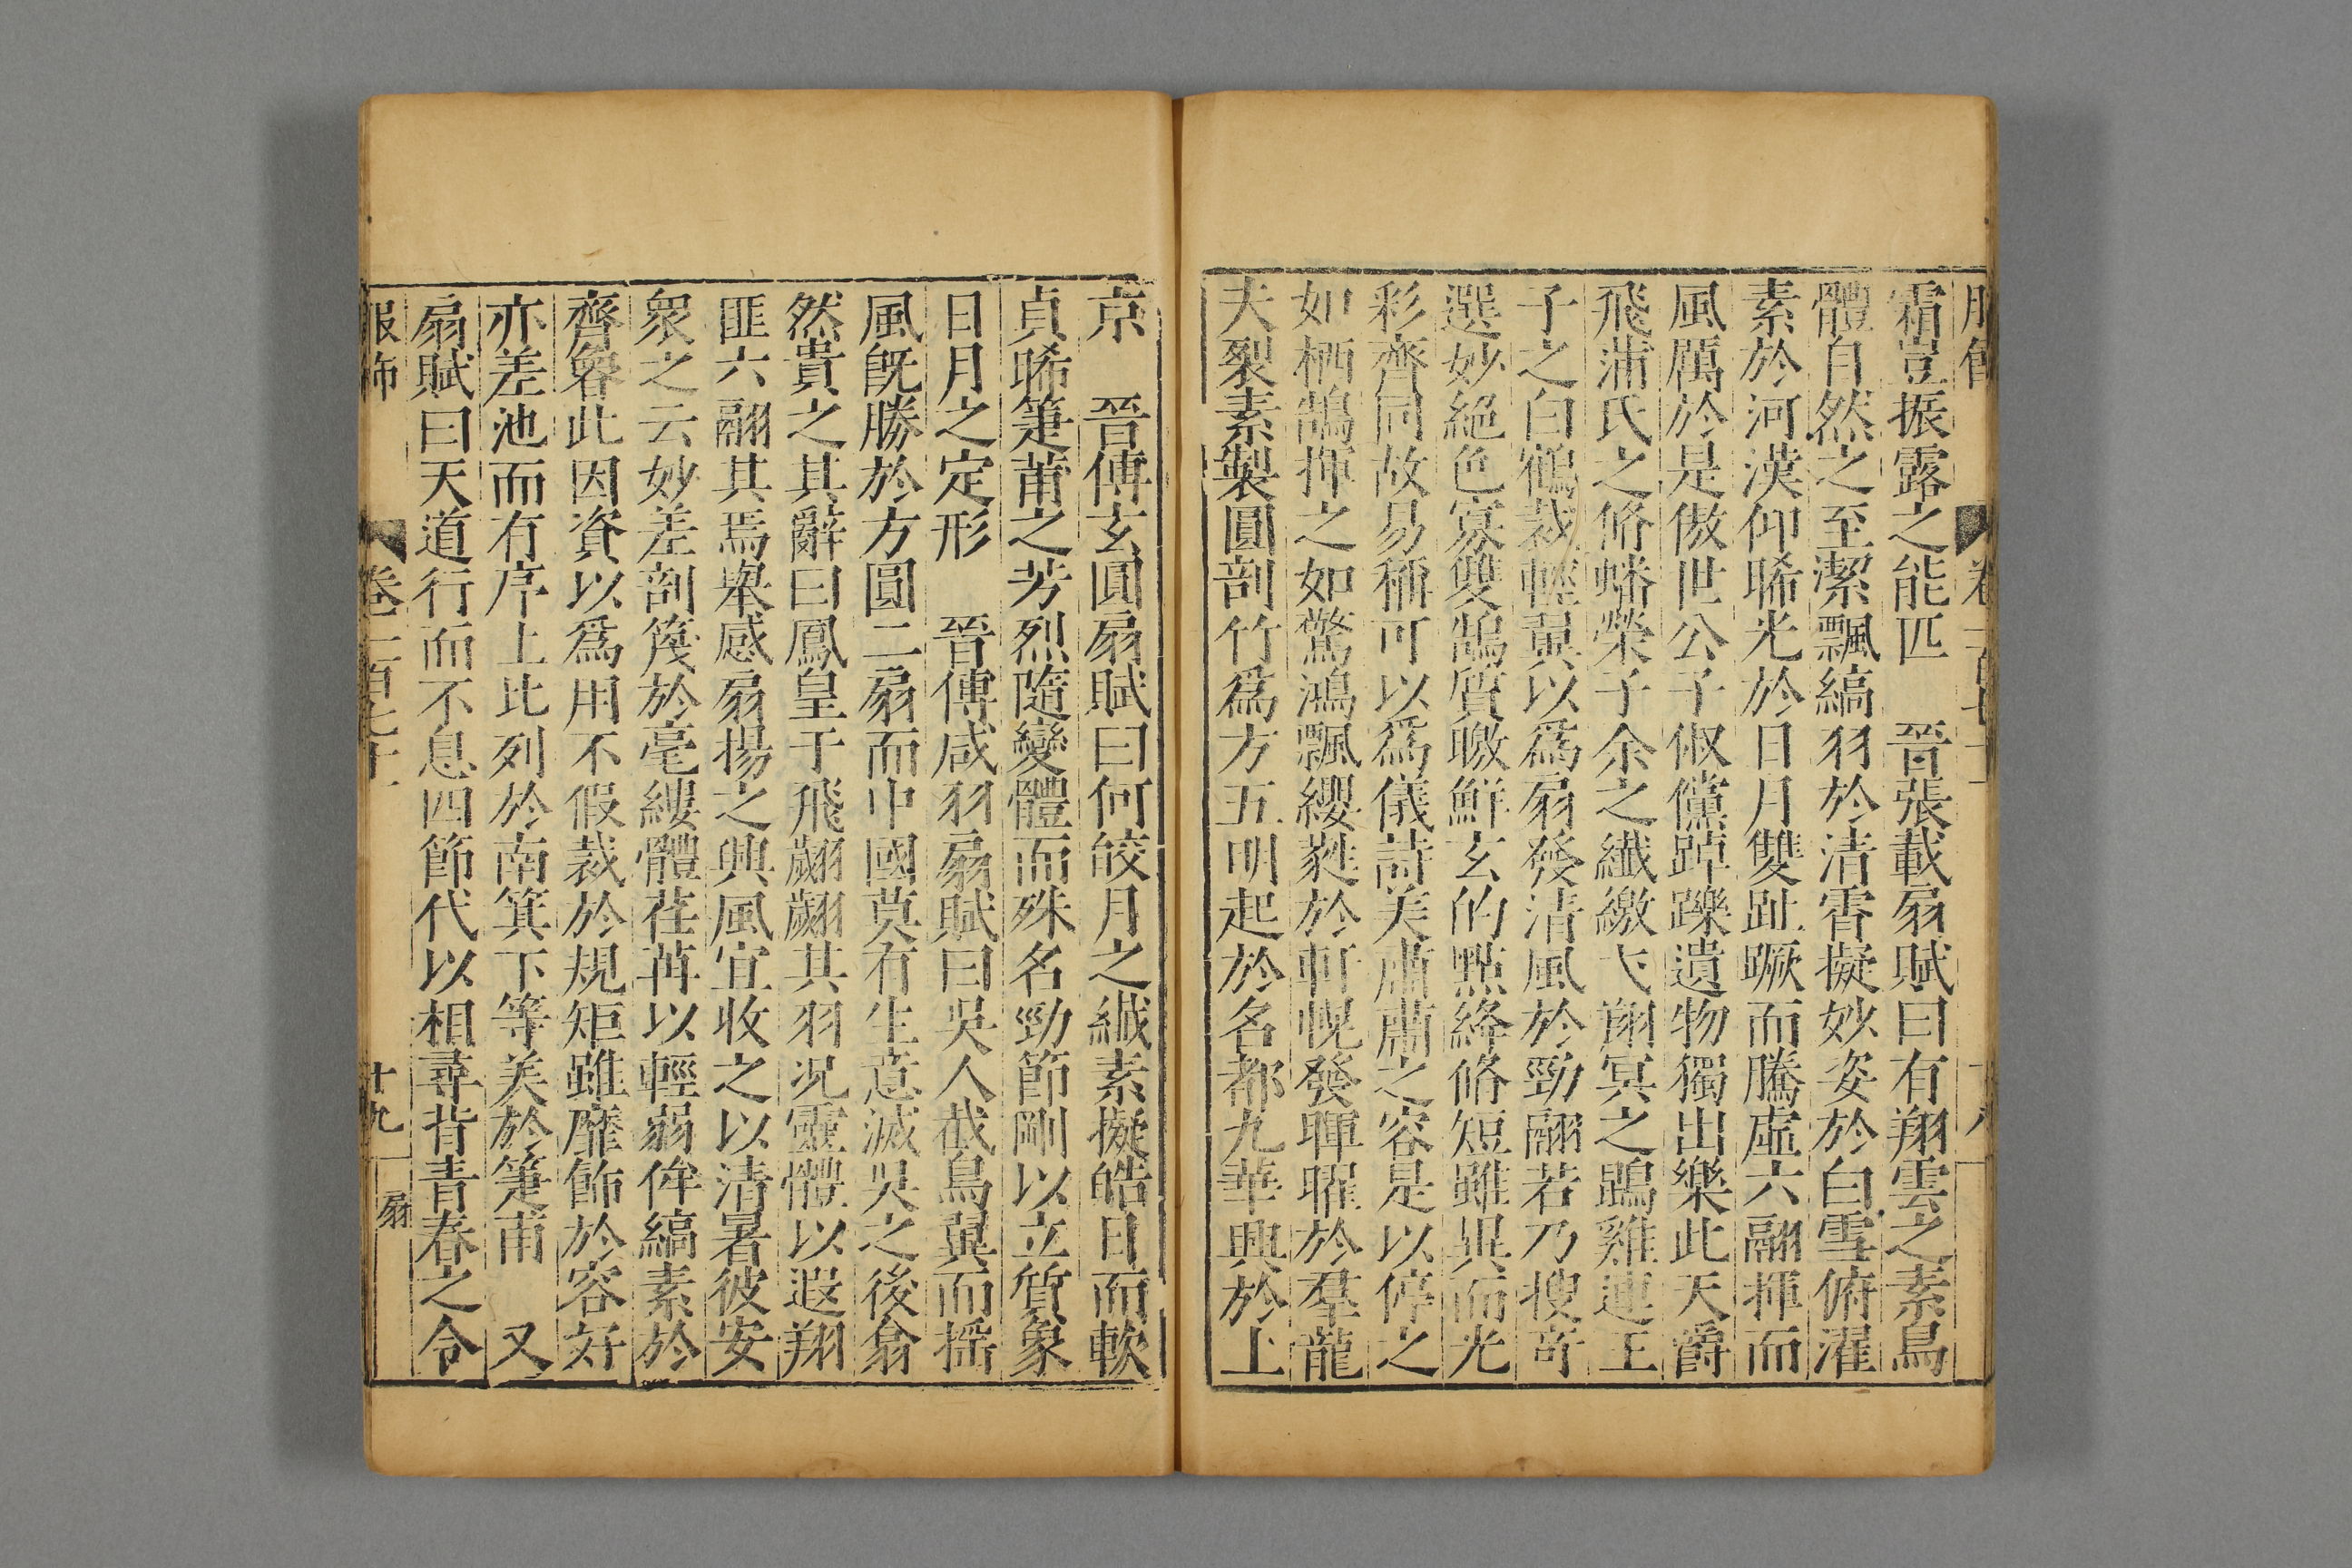 霜豈振露之能匹　晉張載扇賦曰有翔雲之素鳥
體自然之至潔飄縞羽於清霄擬妙姿於白雪俯濯
素於河漢仰晞光於日月雙趾蹶而騰虛六翮揮而
風厲於是傲世公子俶儻踔躒遺物獨出樂此天爵
飛蒲氏之脩蟠榮子余之纖繳弋翔冥之鵾雞連王
子之白鶴裁輕翼以爲扇發清風於勁翮若乃搜奇
選妙絕色寡雙鵠質皦鮮玄的點絳脩短雖異而光
彩齊同故易稱可以爲儀詩美肅肅之容是以停之
如栖鵠揮之如驚鴻飄纓蕤於軒幌發暉曜於羣龍
夫裂素製圓剖竹爲方五明起於名都九華興於上
京　晉傅玄圓扇賦曰何皎月之纎素擬皓日而軟
貞晞箑莆之芳烈隨變體而殊名勁節剛以立質象
日月之定形　晉傅咸羽扇賦曰吳人截鳥翼而搖
風旣勝於方圓二扇而中國莫有生意滅吳之後翕
然貴之其辭曰鳳皇于飛翽翽其羽况靈體以遐翔
匪六翮其焉舉感扇揚之興風宜收之以清暑彼安
衆之云妙差剖篾於毫縷體荏苒以輕弱侔縞素於
齊魯此因資以爲用不假裁於規矩雖靡飾於容好
亦差池而有序上比列於南箕下等美於箑莆　又
扇賦曰天道行而不息四節代以相尋背青春之令
服飾　卷一百七十一　十九　扇